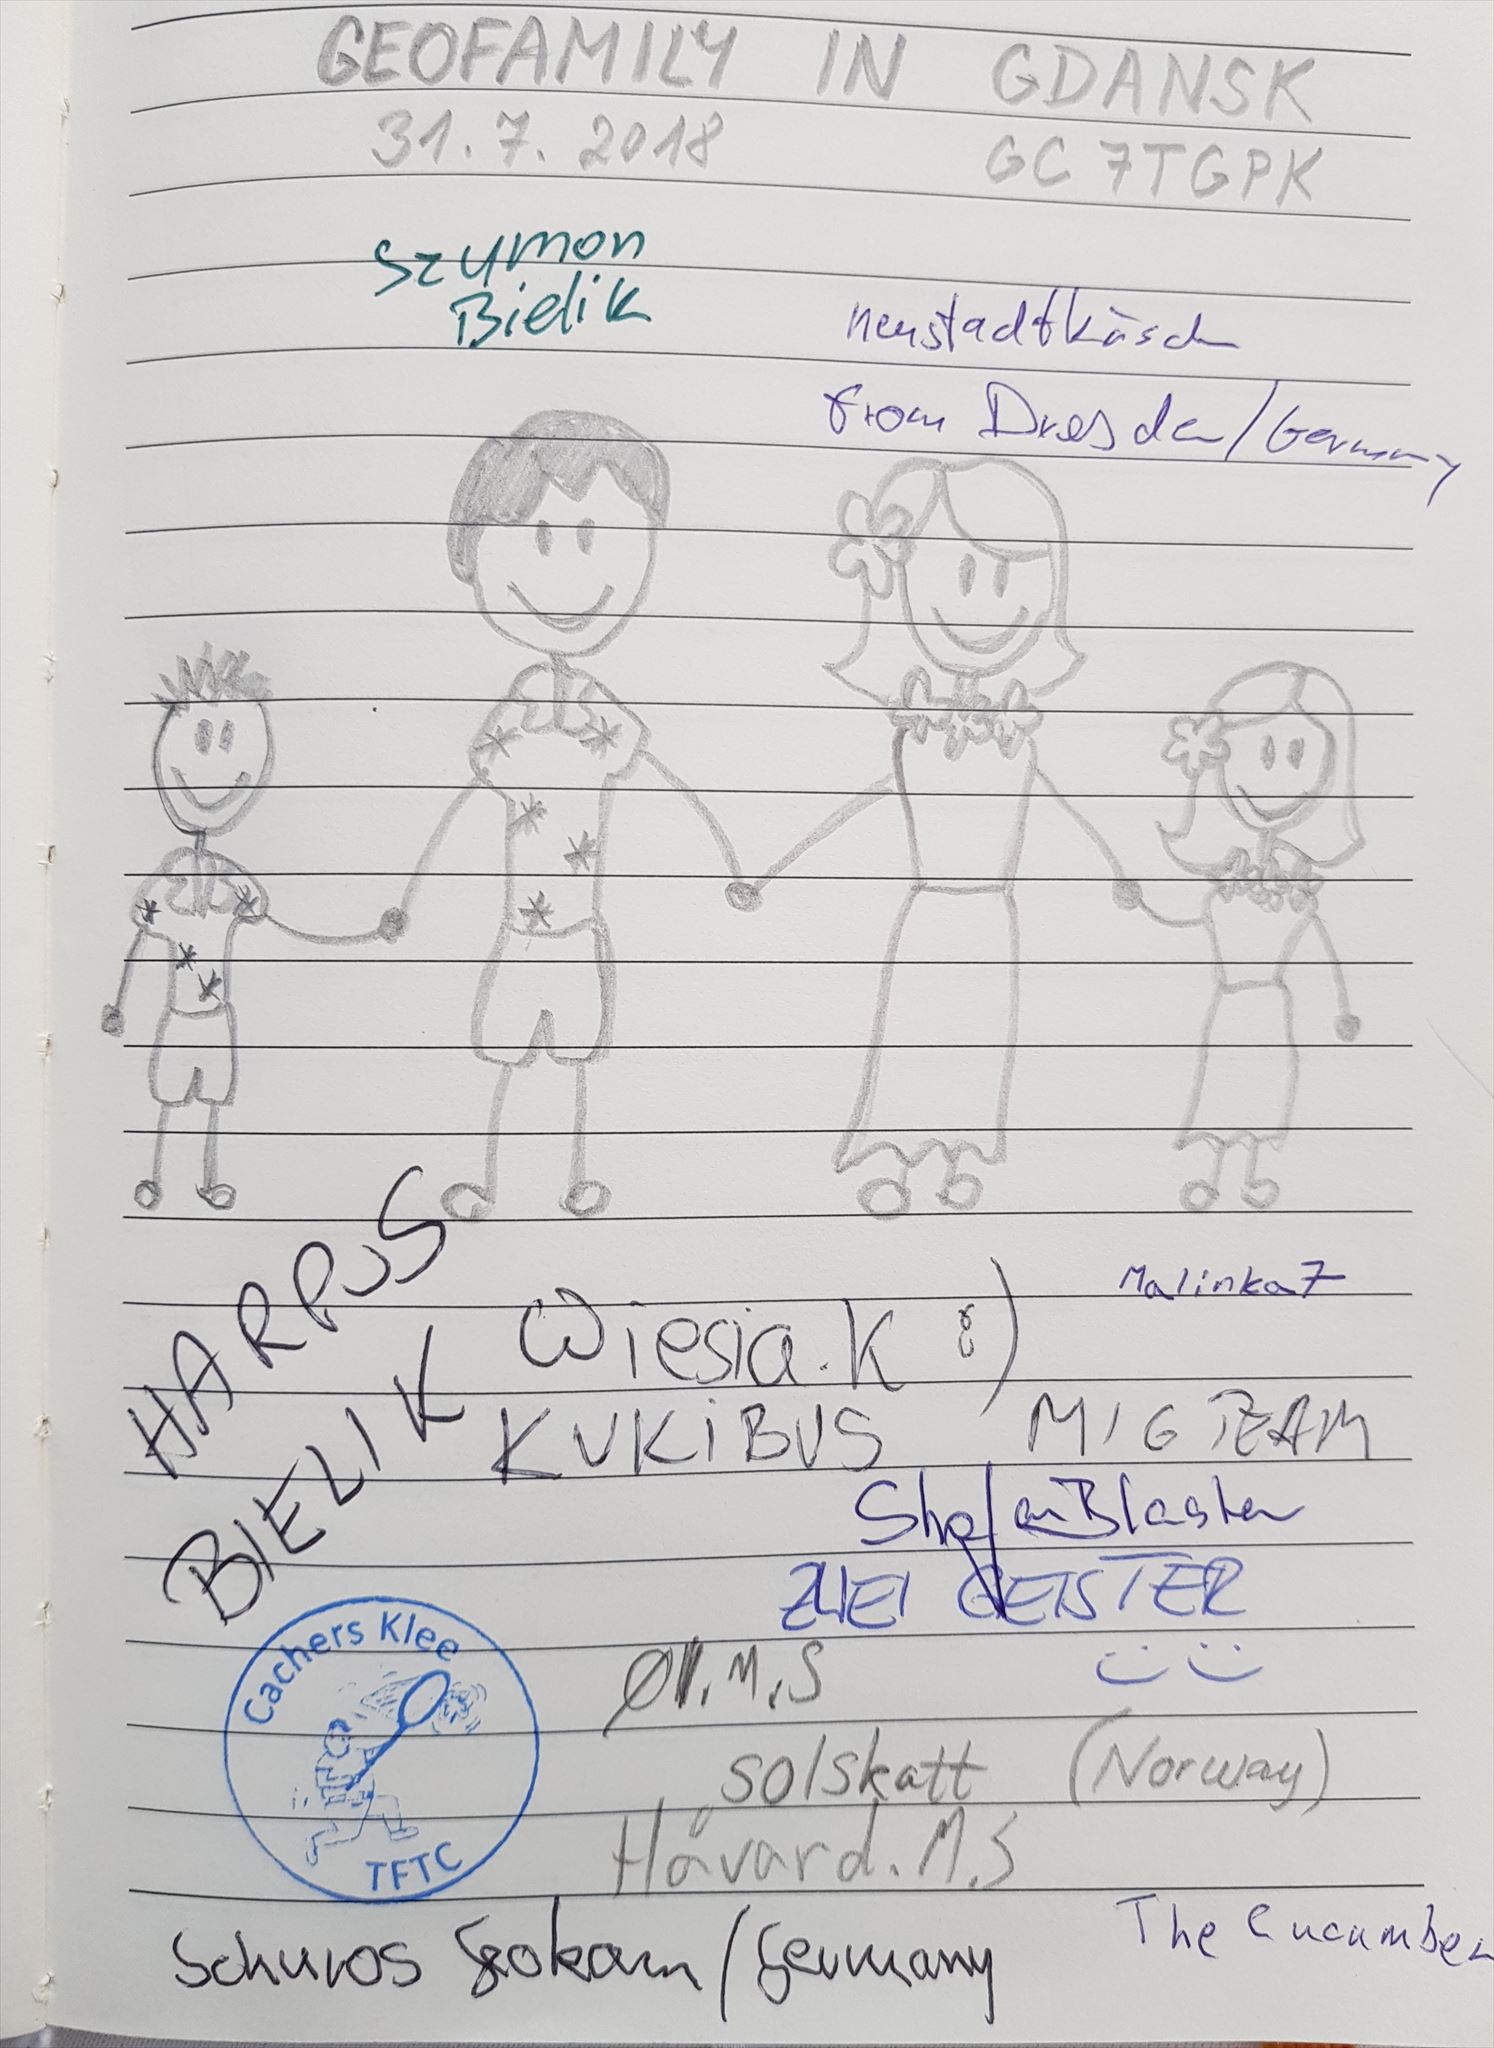 GEOFAMILY IN GDANSK
31.7.2018 GC7TGPK
Szymon
Bielik
neustadtkäsch
from Dresden/Germany
HARPUS
BIELIK
Malinka7
Wiesia.K :)
KUKiBUS
MIGTEAM
StefanBlaster
ZWEI GEISTER
Cachers Klee
TFTC
M.S
solskatt (Norway)
Håvard.M.S
The Cucumber
Schuros /Germany